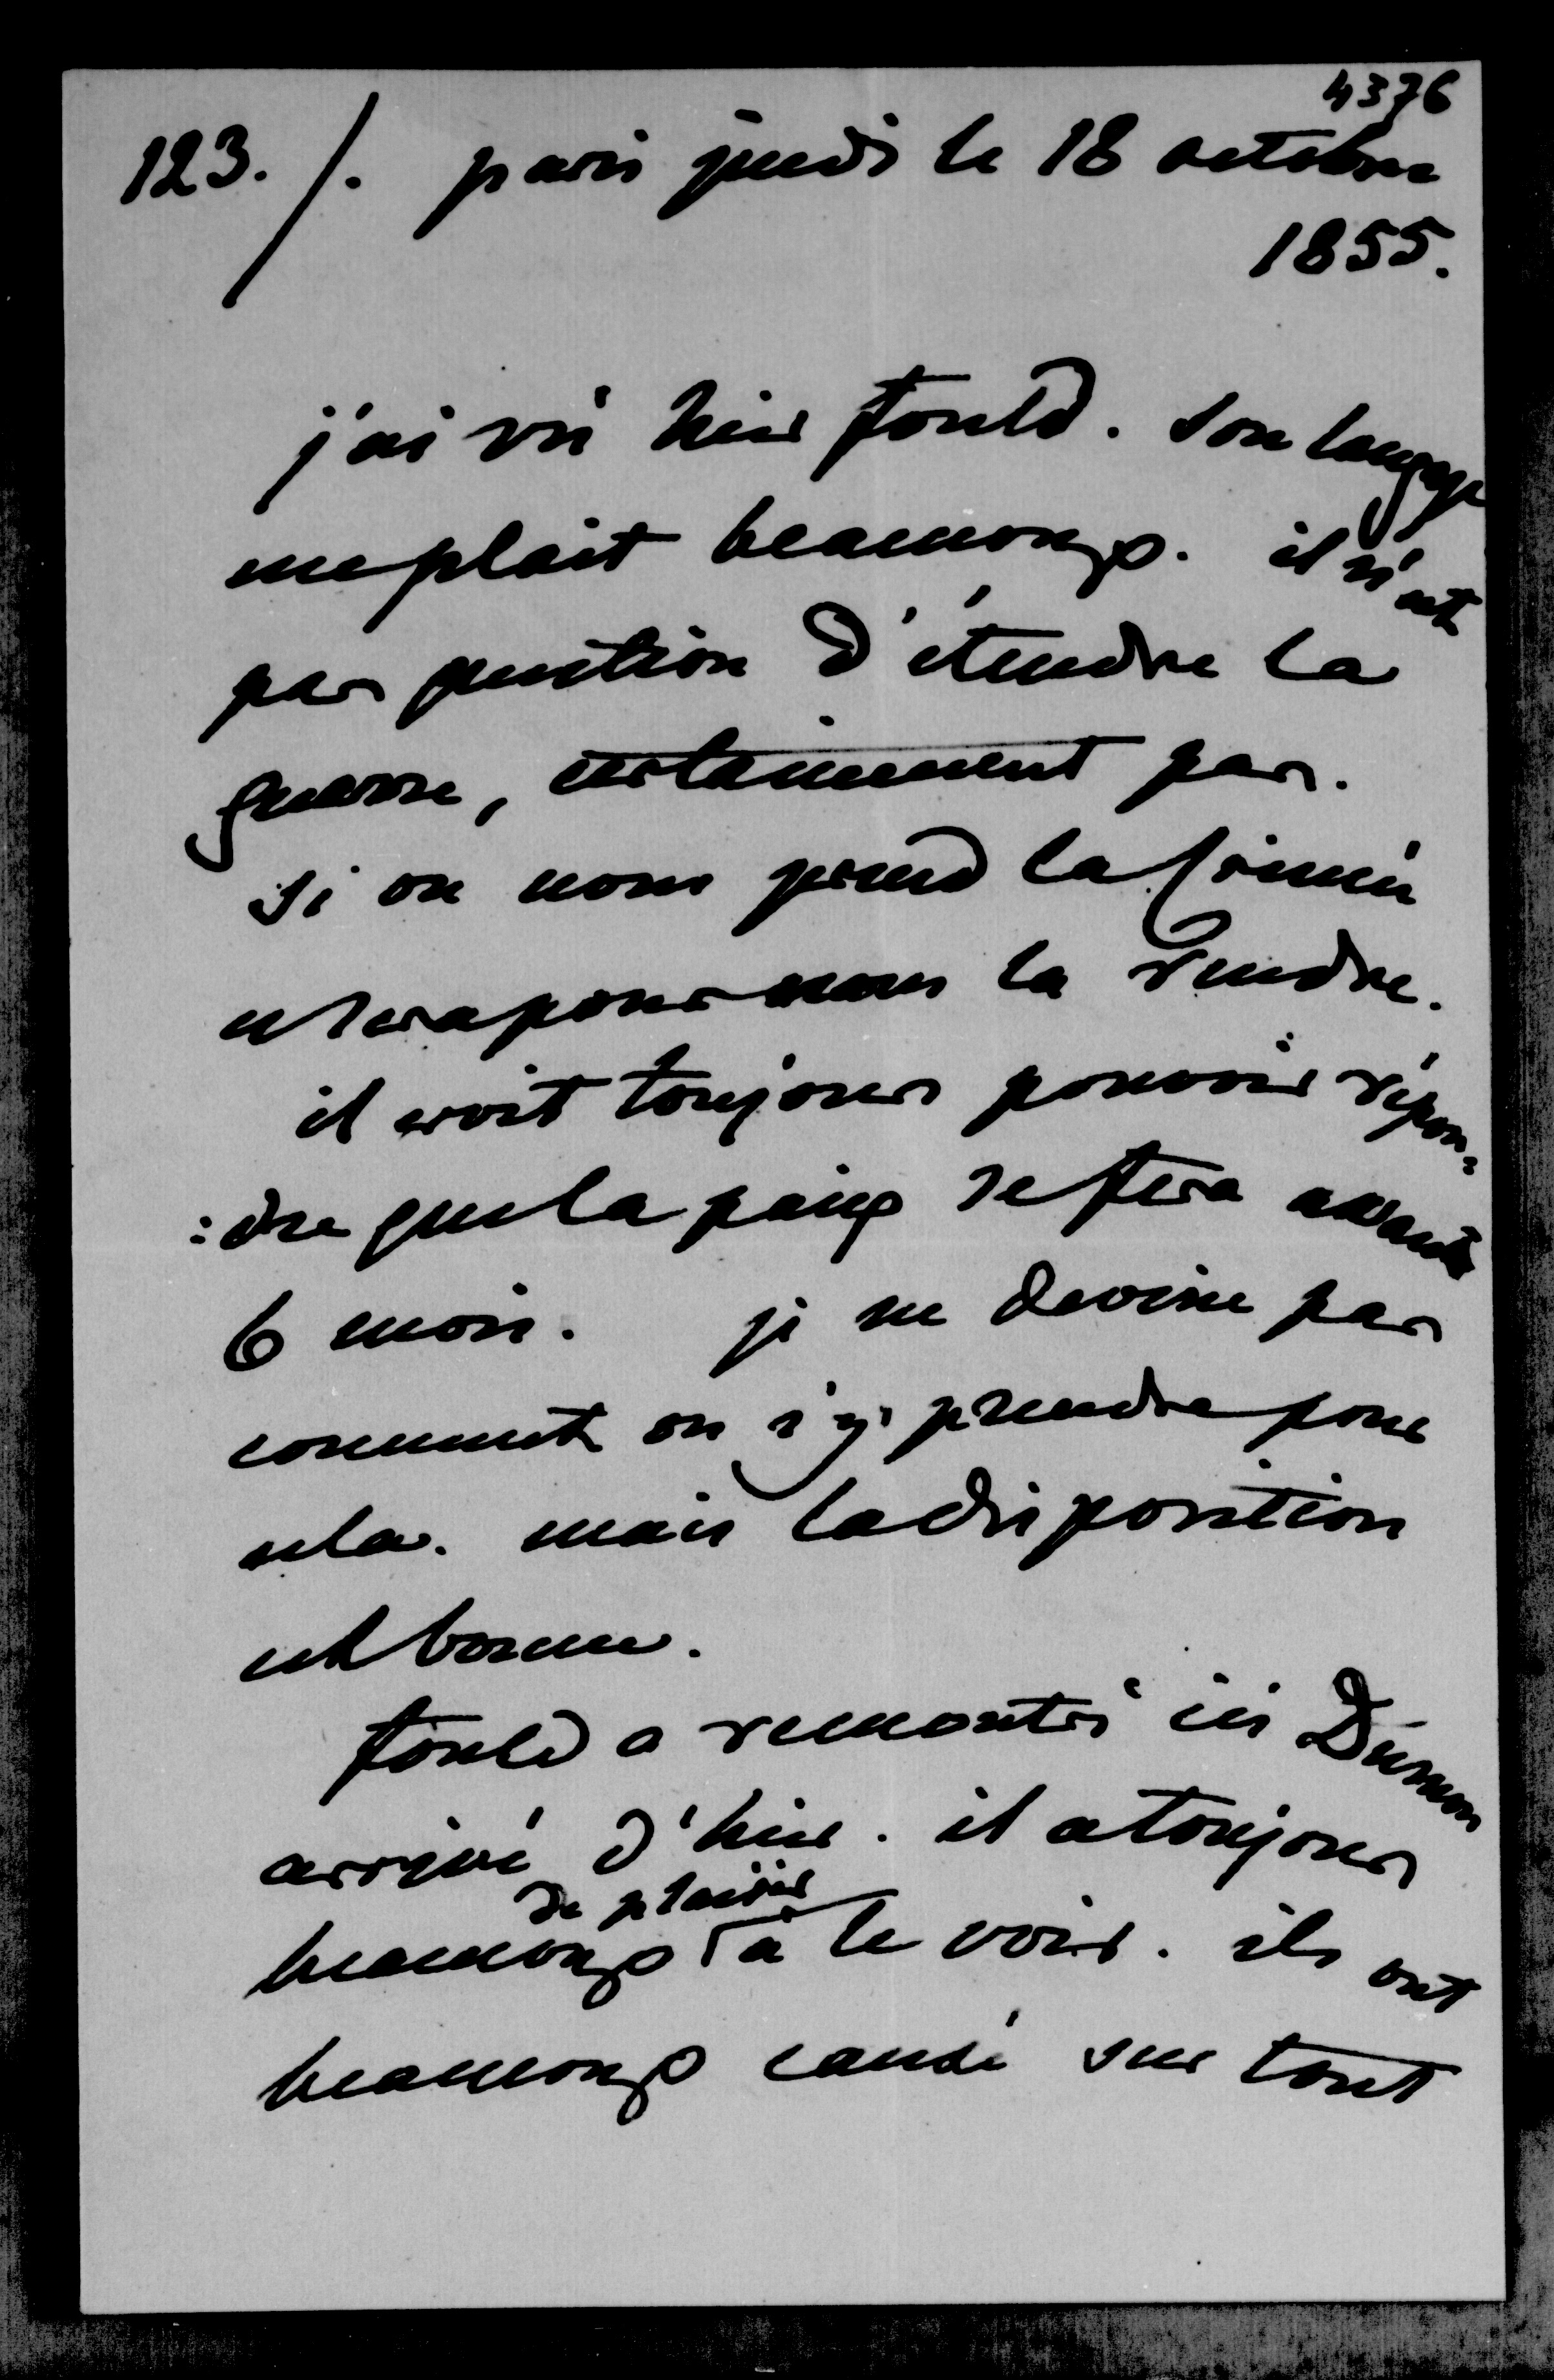 4376
123. /. paris jeudi le 18 octobre
1855.
j'ai vu hier Fould. son langage
me plait beaucoup. il n'est
pas question d'étendre la
guerre, certainement pas.
si on nous prend la Crimée
ce sera pour nous la rendre.
il croit toujours pouvoir répon=
:dre que la paix se fera avant
6 mois. je ne devine pas
comment on s'y prendra pour
cela. mais la disposition
est bonne.
Fould a rencontré ici Dumon
arrivé d'hier. il a toujours
de plaisir
beaucoup à le voir. ils ont
beaucoup causé sur tout